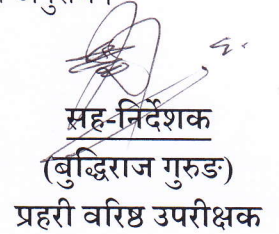 सह-निर्देशक
(बुद्धिराज गुरुङ)
प्रहरी वरिष्ठ उपरीक्षक